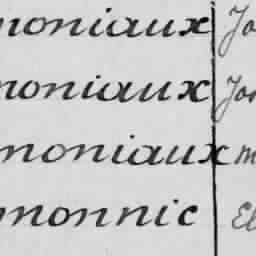 moniaux Jo
moniaux Jos
moniaux m
monnic El